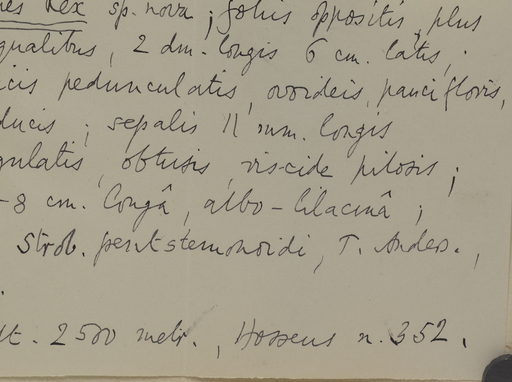 Rex sp. nova ; foliis oppositis, plus
qualibus, 2 dm. longis 6 cm. latis, ;
icis pedunculatis, ovoideis, pauciflovis,
ducis ; sepalis 11 mm. longis
gulatis, obtusis, viscide pilosis ;
-8 cm. longâ, albo-lilacinâ ;
Strob. pentstemonoidi, T. Anders.,
lt. 2500 metr., Hosseus n. 352.